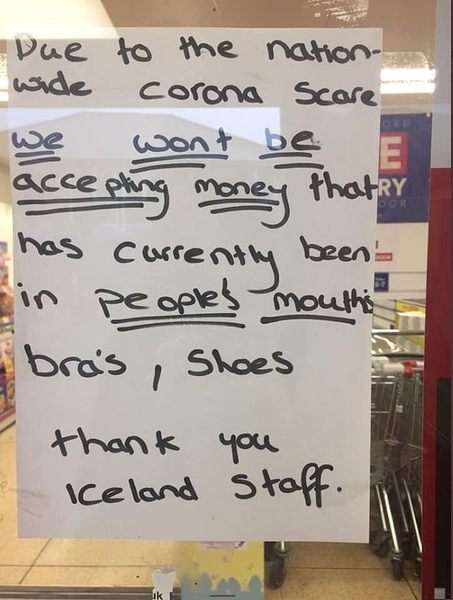 Due to the nation-
wide corona scare
we wont be
accepting money that
has currently been
in people's mouth's
bra's, shoes
thank you
Iceland Staff.
ORE
E
RY
OOR
uk